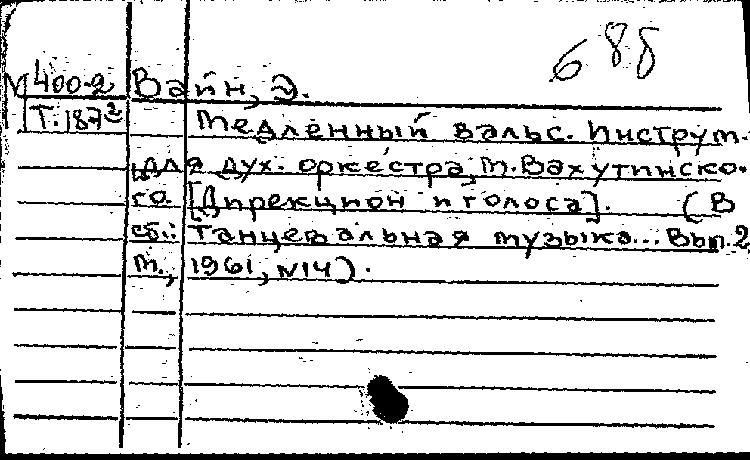 688
М 400-2 Вайн, Э.
Т.187²
Медленный вальс. Инструм.
для дух. оркестра, М. Вахутинско-
го. [Дирекцион и голоса]. (В
сб.: Танцевальная музыка... Вып. 2
М., 1961, №14).